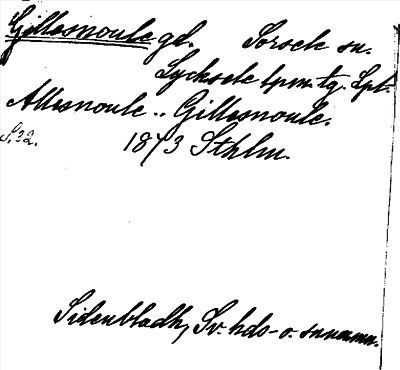 Gillesnoule gd. Sorsele sn.
Lycksele lpm. tg. Lpl.
Allesnoule .. Gillesnoule.
S. 32. 1873 Sthlm.
Sidenbladh, Sv. hds- o. snnamn.